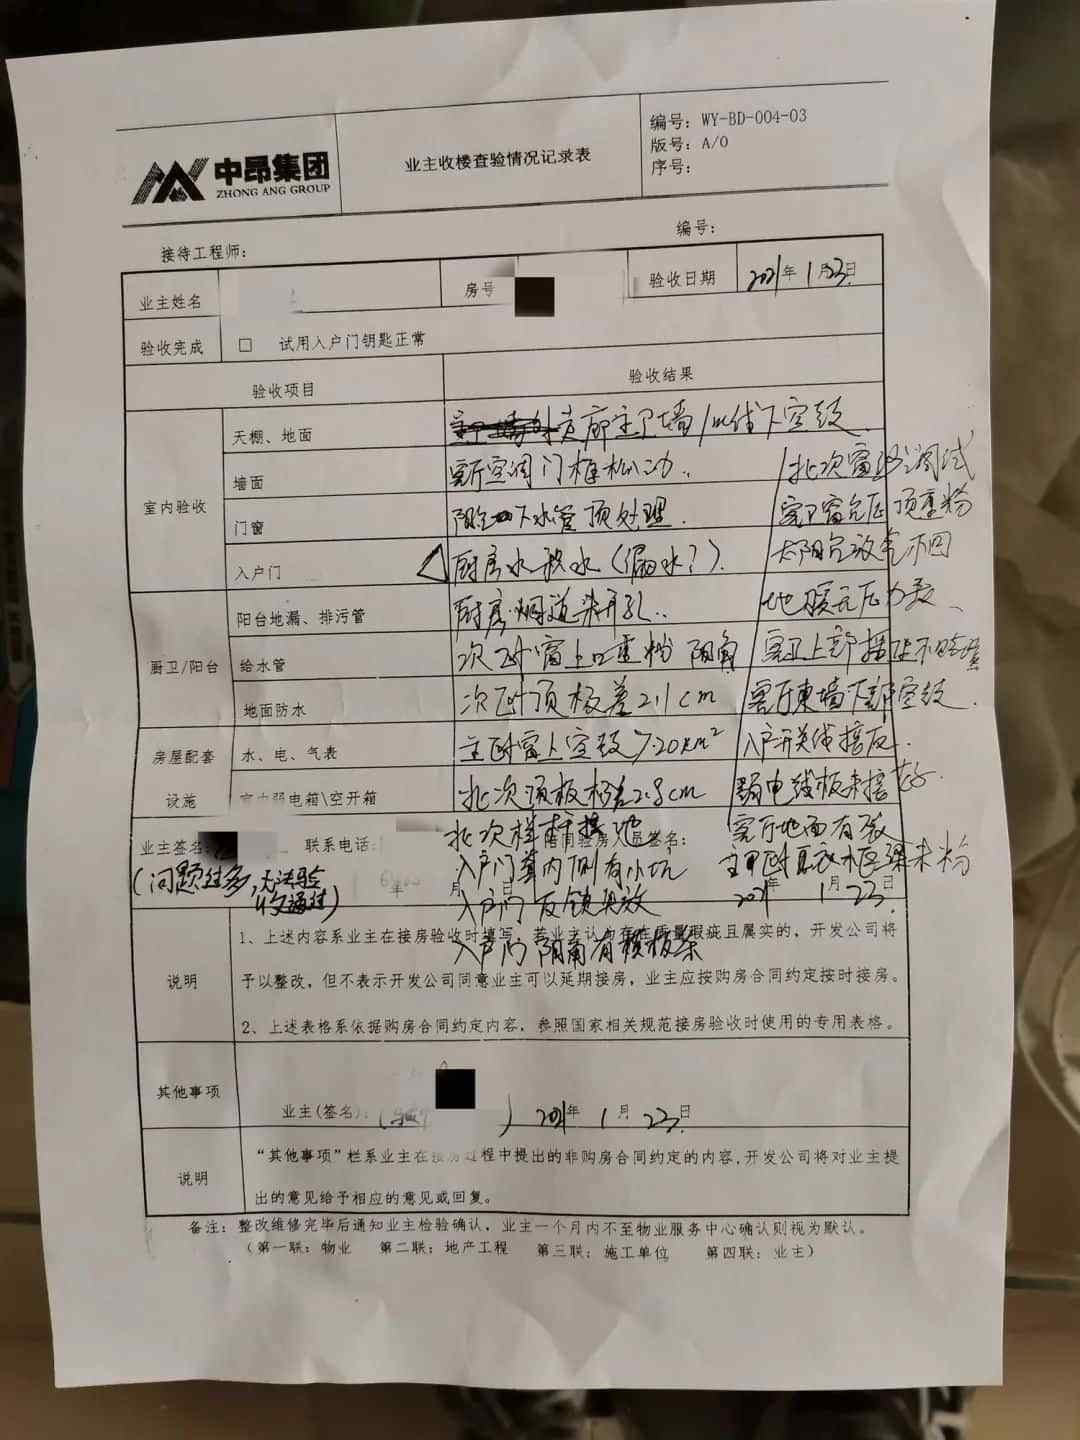 中昂集团
ZHONG ANG GROUP
业主收楼查验情况记录表
编号：WY-BD-004-03
版号：A/0
序号：
接待工程师：
编号：
业主姓名
房号
验收日期
2021年 1月23日
验收完成
□ 试用入户门钥匙正常
验收项目
验收结果
室内验收
天棚、地面
走廊主卫墙1m线下空鼓
墙面
客厅空调门框松动
门窗
下水管 顶处理
入户门
厨房水 积水（漏水？）
阳台地漏、排污管
厨房烟道未开孔
厨卫/阳台
给水管
次卧窗上口 阳角
地面防水
次卧顶板差2.1cm
房屋配套
设施
水、电、气表
主卧窗上空鼓>20
室内弱电箱\空开箱
北次顶板 2.8cm
北次
入户门 内侧有小坑
入户门反锁失效
入户门阳角有
北次窗 调试
客卫窗 顶
大阳台
地暖无压力表
客卫上部 不
客厅东墙下部空鼓
入户开关线接反
弱电线板未接好
客厅地面有裂
主卧 未粉
业主签名：
联系电话：
陪同验房人员签名：
（问题过多，无法验收通过）
年 月 日
2021年 1月 23日
说明
1、上述内容系业主在接房验收时填写，若业主认为存在质量瑕疵且属实的，开发公司将
予以整改，但不表示开发公司同意业主可以延期接房，业主应按购房合同约定按时接房。
2、上述表格系依据购房合同约定内容，参照国家相关规范接房验收时使用的专用表格。
其他事项
业主(签名)：
2021年 1月 23日
说明
“其他事项”栏系业主在接房过程中提出的非购房合同约定的内容，开发公司将对业主提
出的意见给予相应的意见或回复。
备注：整改维修完毕后通知业主检验确认，业主一个月内不至物业服务中心确认则视为默认。
（第一联：物业 第二联：地产工程 第三联：施工单位 第四联：业主）